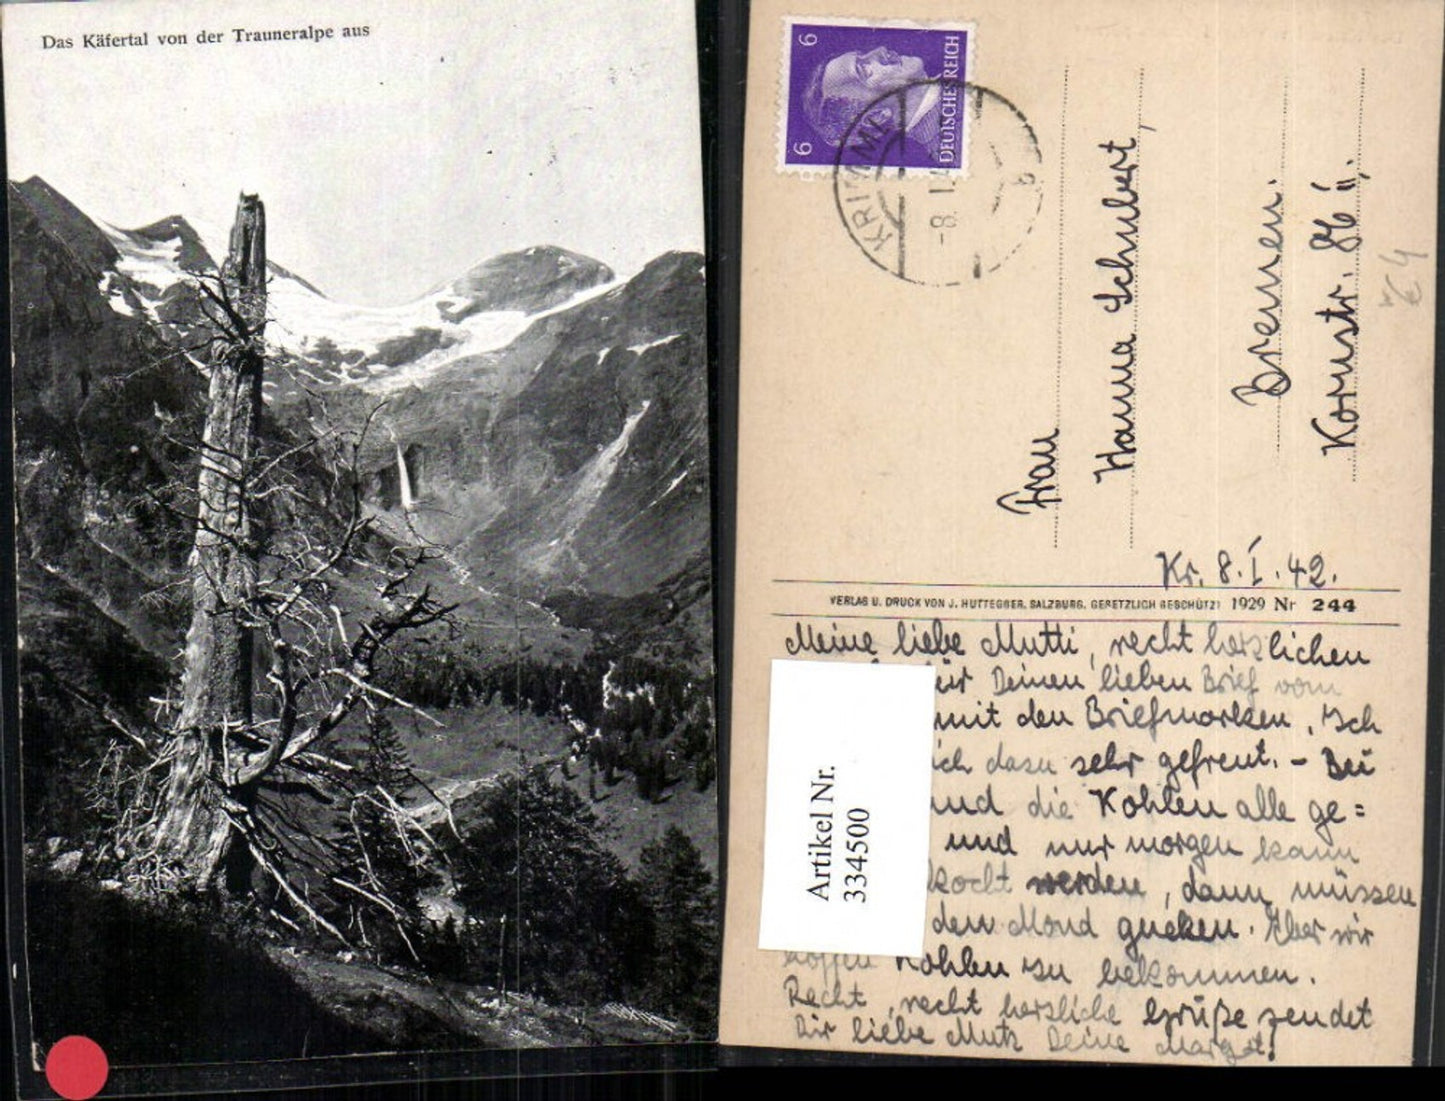 Das Käfertal von der Trauneralpe aus
6 6
DEUTSCHES REICH
KRIMML
-8. 1.
b
Frau
Hanna Schubert,
Bremen.
Kornstr. 86 ü,
€ 4
Kr. 8.I.42.
VERLAG U. DRUCK VON J. HUTTEGGER, SALZBURG. GESETZLICH GESCHÜTZT 1929 Nr 244
Meine liebe Mutti, recht herzlichen
Deinen lieben Brief vom
mit den Briefmarken. Ich
ich dazu sehr gefreut. - Bei
und die Kohlen alle ge=
und nur morgen kann
kocht werden, dann müssen
den Mond gucken. Aber wir
hoffen Kohlen zu bekommen.
Recht, recht herzliche Grüße sendet
Dir liebe Mutz Deine Margot.
Artikel Nr.
334500